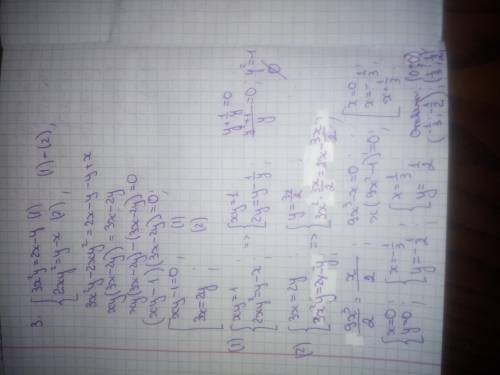 3. { 3x²y = 2x-y (1)
{ 2xy² = y-x (2), (1)-(2),
3x²y-2xy² = 2x-y-y+x
xy(3x-2y) = 3x-2y
xy(3x-2y)-(3x-2y)=0
(xy-1)(3x-2y)=0;
[ xy-1=0, (1)
[ 3x=2y (2)
(1) { xy=1 => { xy=1 y+1/y=0
{ 2xy²=y-x, { 2y=y-1/y (y²+1)/y=0, y²=-1
∅
(2) { 3x=2y => { y=3x/2
{ 3x²y=2x-y, { 3x²·3x/2=2x-3x/2,
9x³/2 = x/2, 9x³-x=0 [ x=0
x(9x²-1)=0; [ x=-1/3,
[ x=1/3
{ x=0 { x=-1/3 { x=1/3
{ y=0; { y=-1/2 { y=1/2
Ответ: (0;0)
(-1/3;-1/2), (1/3;1/2)